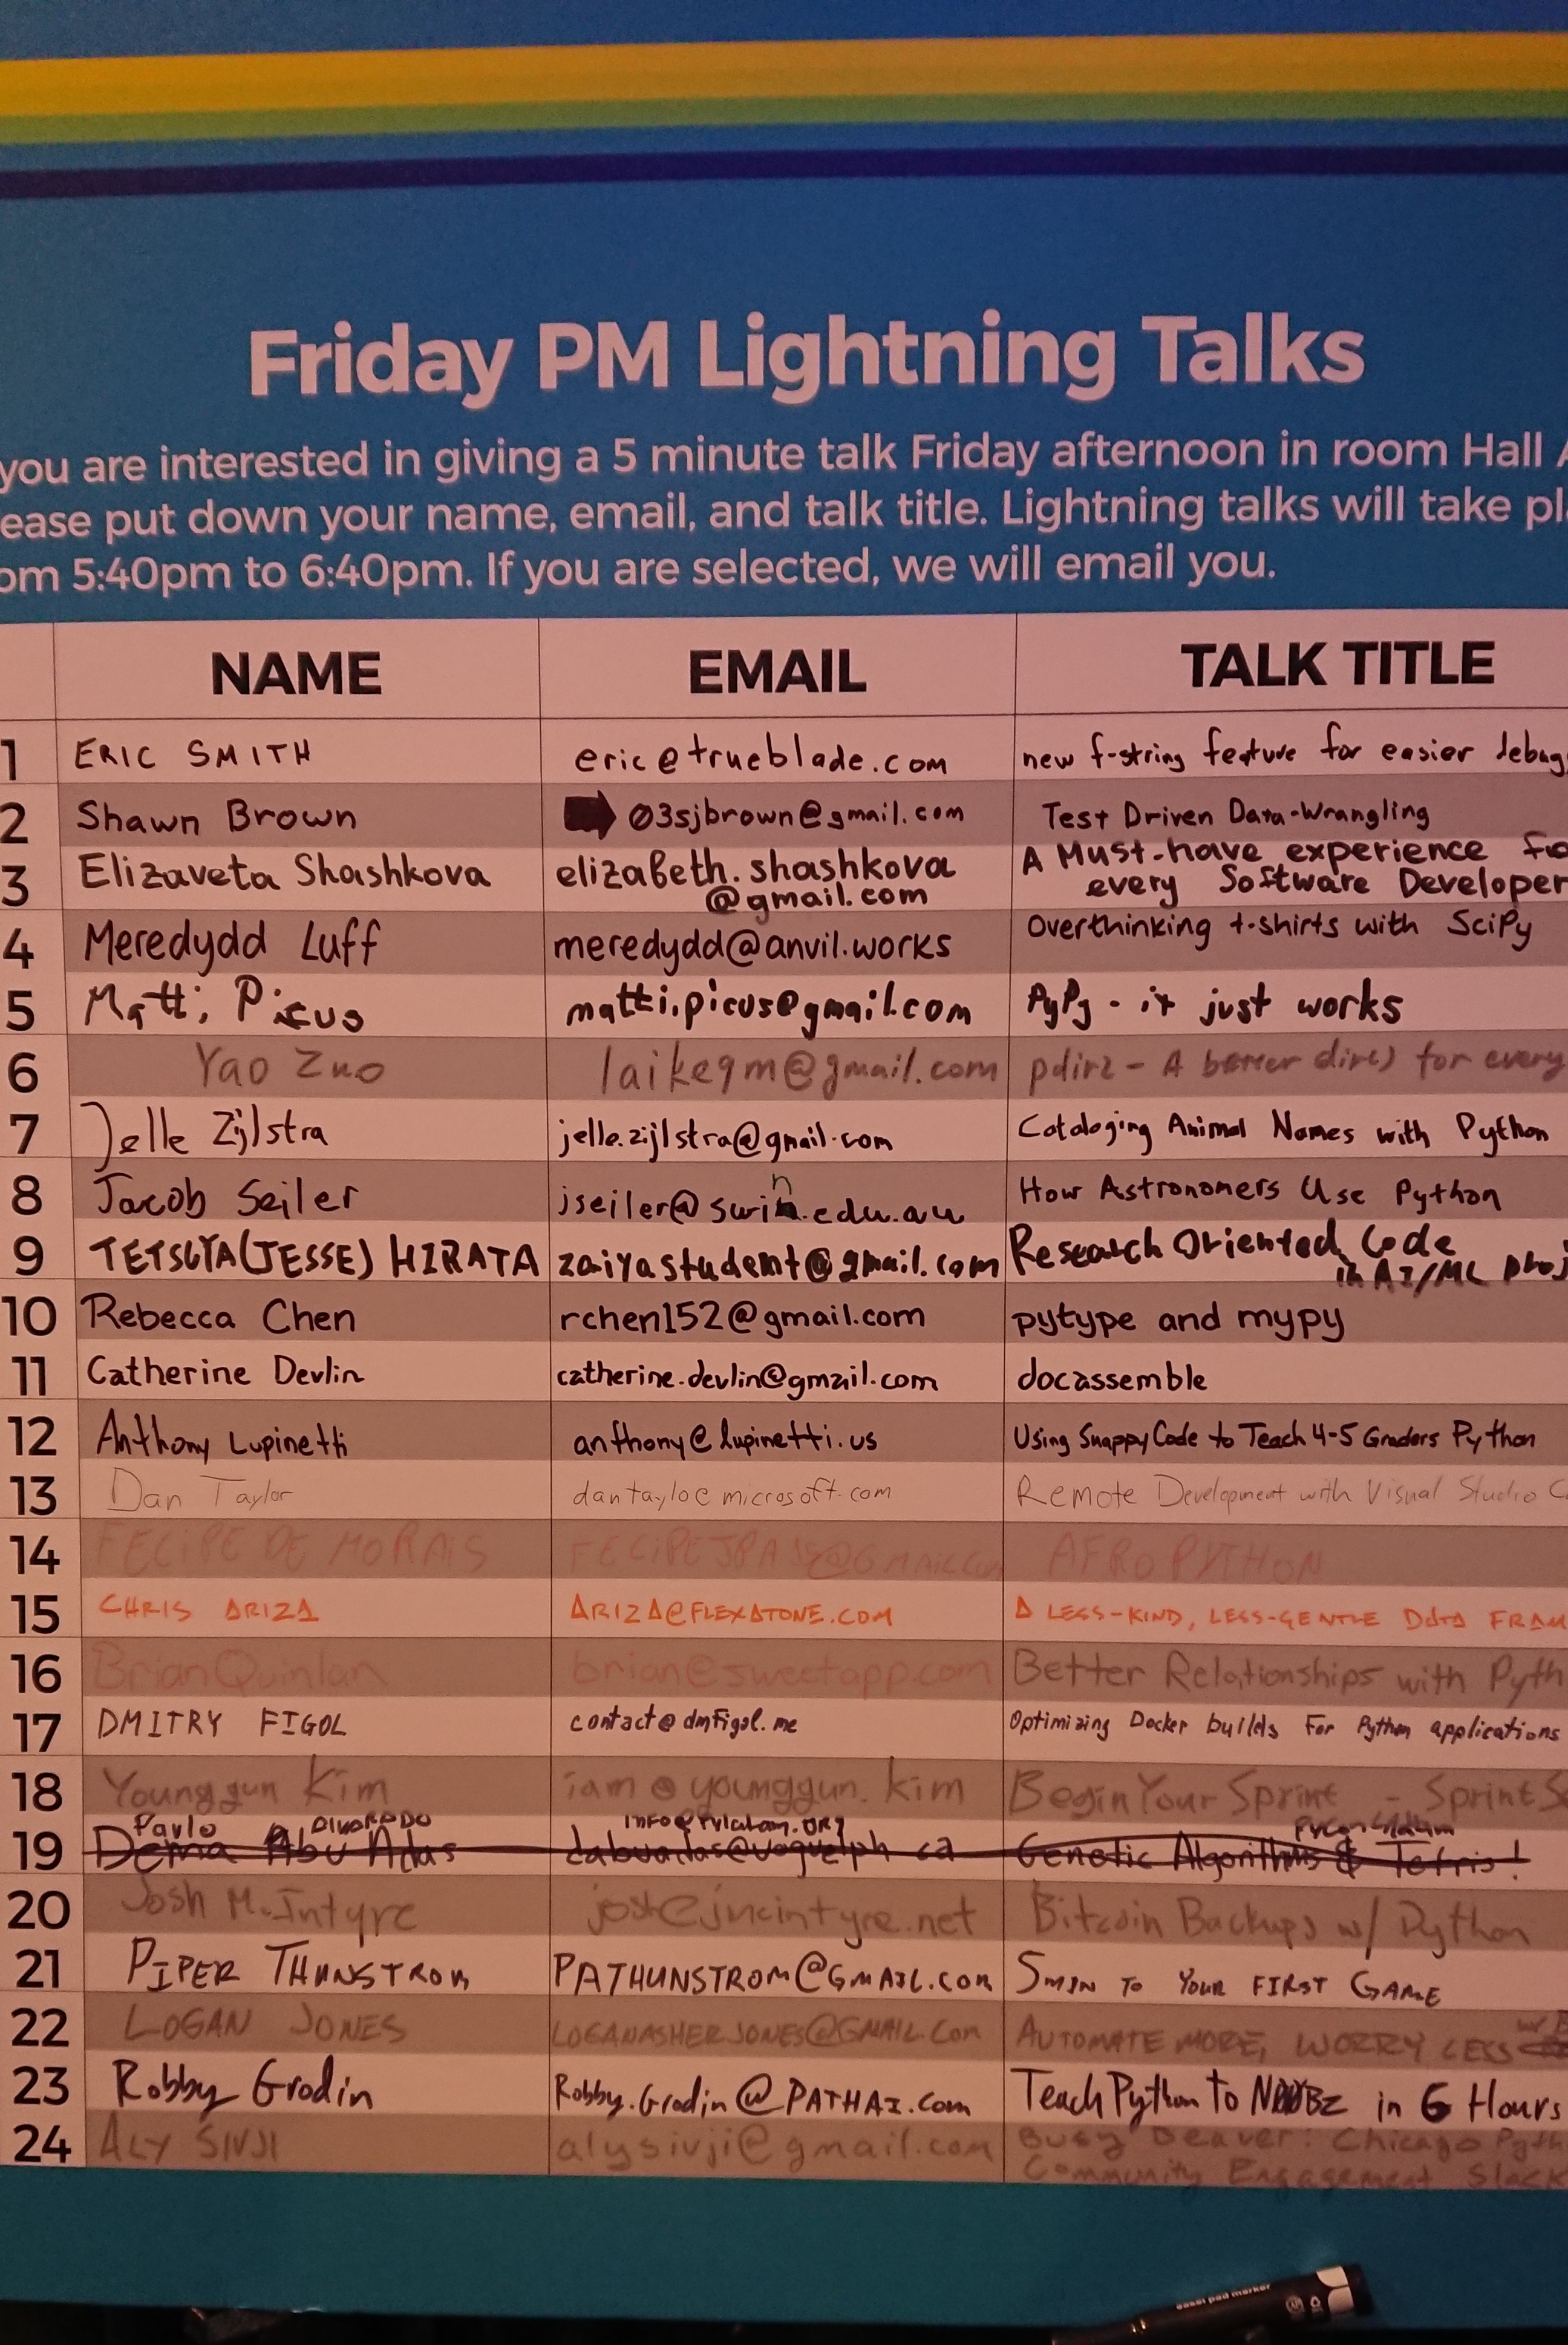 Friday PM Lightning Talks
you are interested in giving a 5 minute talk Friday afternoon in room Hall A
ease put down your name, email, and talk title. Lightning talks will take pl
om 5:40pm to 6:40pm. If you are selected, we will email you.
NAME EMAIL TALK TITLE
1 ERIC SMITH eric@trueblade.com new f-string feature for easier debug
2 Shawn Brown 03sjbrown@gmail.com Test Driven Data-Wrangling
3 Elizaveta Shashkova elizabeth.shashkova @gmail.com A Must-have experience for every Software Developer
4 Meredydd Luff meredydd@anvil.works Overthinking t-shirts with SciPy
5 Matti Picus matti.picus@gmail.com PyPy - it just works
6 Yao Zuo laikeqm@gmail.com pdir2 - A better dir() for every
7 Jelle Zijlstra jelle.zijlstra@gmail.com Cataloging Animal Names with Python
8 Jacob Seiler jseiler@swin.edu.au How Astronomers Use Python
9 TETSUYA(JESSE) HIRATA zaiyastudent@gmail.com Research Oriented Code in AI/ML proj
10 Rebecca Chen rchen152@gmail.com pytype and mypy
11 Catherine Devlin catherine.devlin@gmail.com docassemble
12 Anthony Lupinetti anthony@lupinetti.us Using SnappyCode to Teach 4-5 Graders Python
13 Dan Taylor dantaylo@microsoft.com Remote Development with Visual Studio C
14 FELIPE DE MORAIS AFROPYTHON
15 CHRIS ARIZA ARIZA@FLEXATONE.COM A LESS-KIND, LESS-GENTLE DATA FRAM
16 Brian Quinlan brian@sweetapp.com Better Relationships with Pyth
17 DMITRY FIGOL contact@dmfigol.me Optimizing Docker builds For Python applications
18 Younggun Kim iam@younggun.kim Begin Your Sprint - Sprint Se
19 Dema Abu Adas Genetic Algorithms & Tetris!
20 Josh McIntyre josh@jmcintyre.net Bitcoin Backups w/ Python
21 PIPER THUNSTROM PATHUNSTROM@GMAIL.COM 5MIN TO YOUR FIRST GAME
22 LOGAN JONES LOGANASHERJONES@GMAIL.COM AUTOMATE MORE, WORRY LESS
23 Robby Grodin Robby.Grodin@PATHAI.com Teach Python to N00Bz in 6 Hours
24 ALY SIVJI alysivji@gmail.com Busy Beaver: Chicago Pyth
Community Engagement Slack
easel pad marker